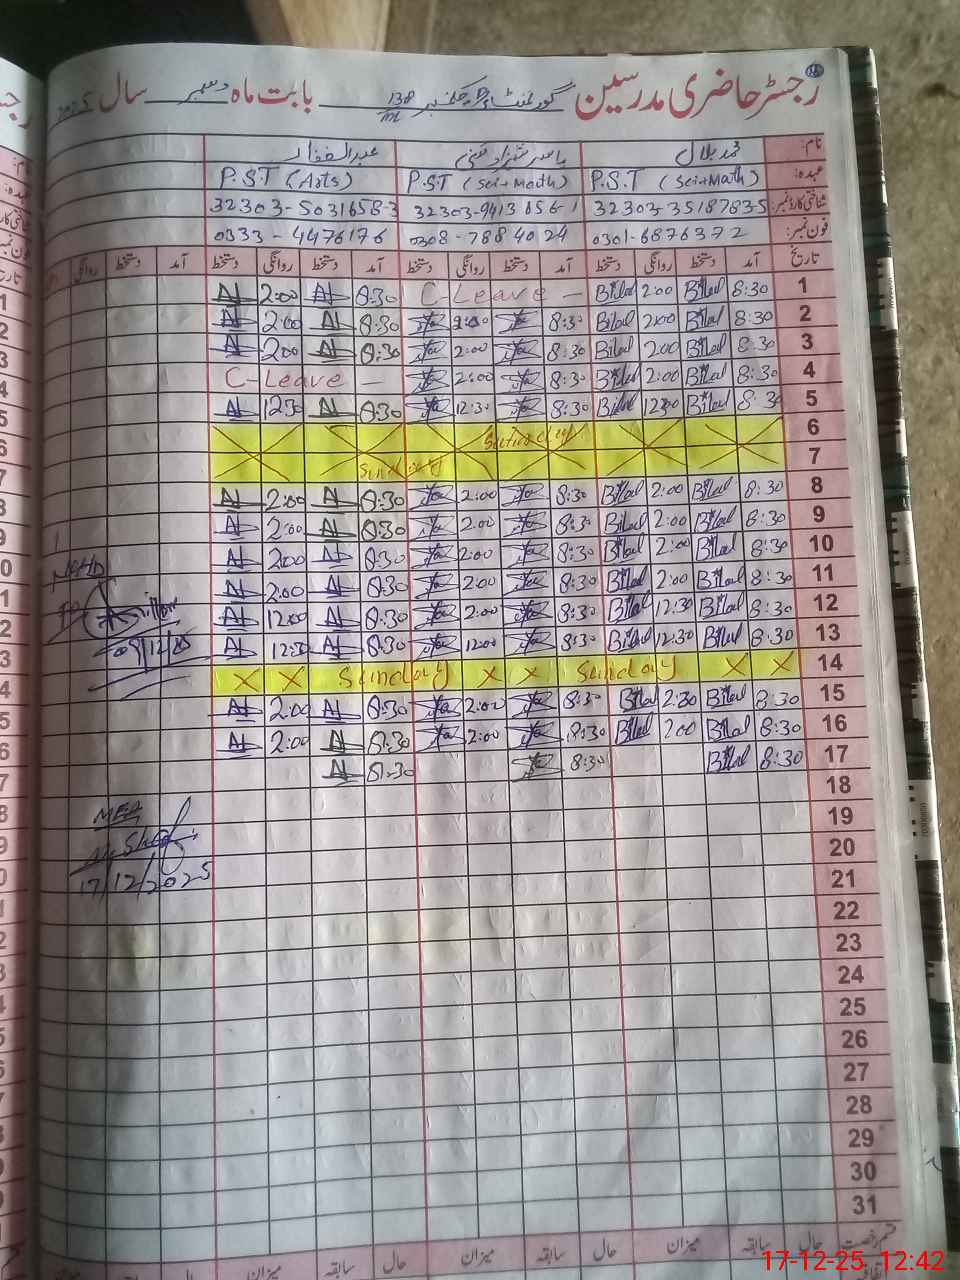 رجسٹر حاضری مدرسین گورنمنٹ بابت ماہ دسمبر سال 2025
138
نام: محمد بلال عبدالغفار
عہدہ: P.S.T (Sci+Math) P.S.T (Sci+Math) P.S.T (Arts)
شناختی کارڈ نمبر: 32303-3518783-5 32303-9413656-1 32303-5031658-3
فون نمبر: 0301-6876372 0308-7884024 0333-4476176
تاریخ آمد دستخط روانگی دستخط آمد دستخط روانگی دستخط آمد دستخط روانگی دستخط آمد دستخط روانگی
1 8:30 Bilal 2:00 Bilal C-Leave – 8:30 2:00
2 8:30 Bilal 2:00 Bilal 8:30 2:00 8:30 2:00
3 8:30 Bilal 200 Bilal 8:30 2:00 8:30 2:00
4 8:30 Bilal 2:00 Bilal 8:30 2:00 C-Leave –
5 8:30 Bilal Bilal 8:30 12:30 8:30 1230
6 Saturday
7 Sunday
8 8:30 Bilal 2:00 Bilal 8:30 2:00 8:30 2:00
9 8:30 Bilal 2:00 Bilal 8:30 2:00 8:30 2:00
10 8:30 Bilal 2:00 Bilal 8:30 2:00 8:30 2:00
11 8:30 Bilal 2:00 Bilal 8:30 2:00 8:30 2:00
12 8:30 Bilal 12:30 Bilal 8:30 2:00 8:30 12:00
13 8:30 Bilal 12:30 Bilal 8:30 12:00 8:30 12:30
09/12/25
14 x x Sunday x x Sunday x x
15 8:30 Bilal 2:30 Bilal 8:30 2:00 8:30 2:00
16 8:30 Bilal 200 Bilal 8:30 2:00 8:30 2:00
17 8:30 Bilal 8:30 8:30
18
MEA
19
20
17/12/2025
21
22
23
24
25
26
27
28
29
30
31
قسم رخصت حال سابقہ میزان حال سابقہ میزان حال سابقہ میزان
17-12-25 12:42